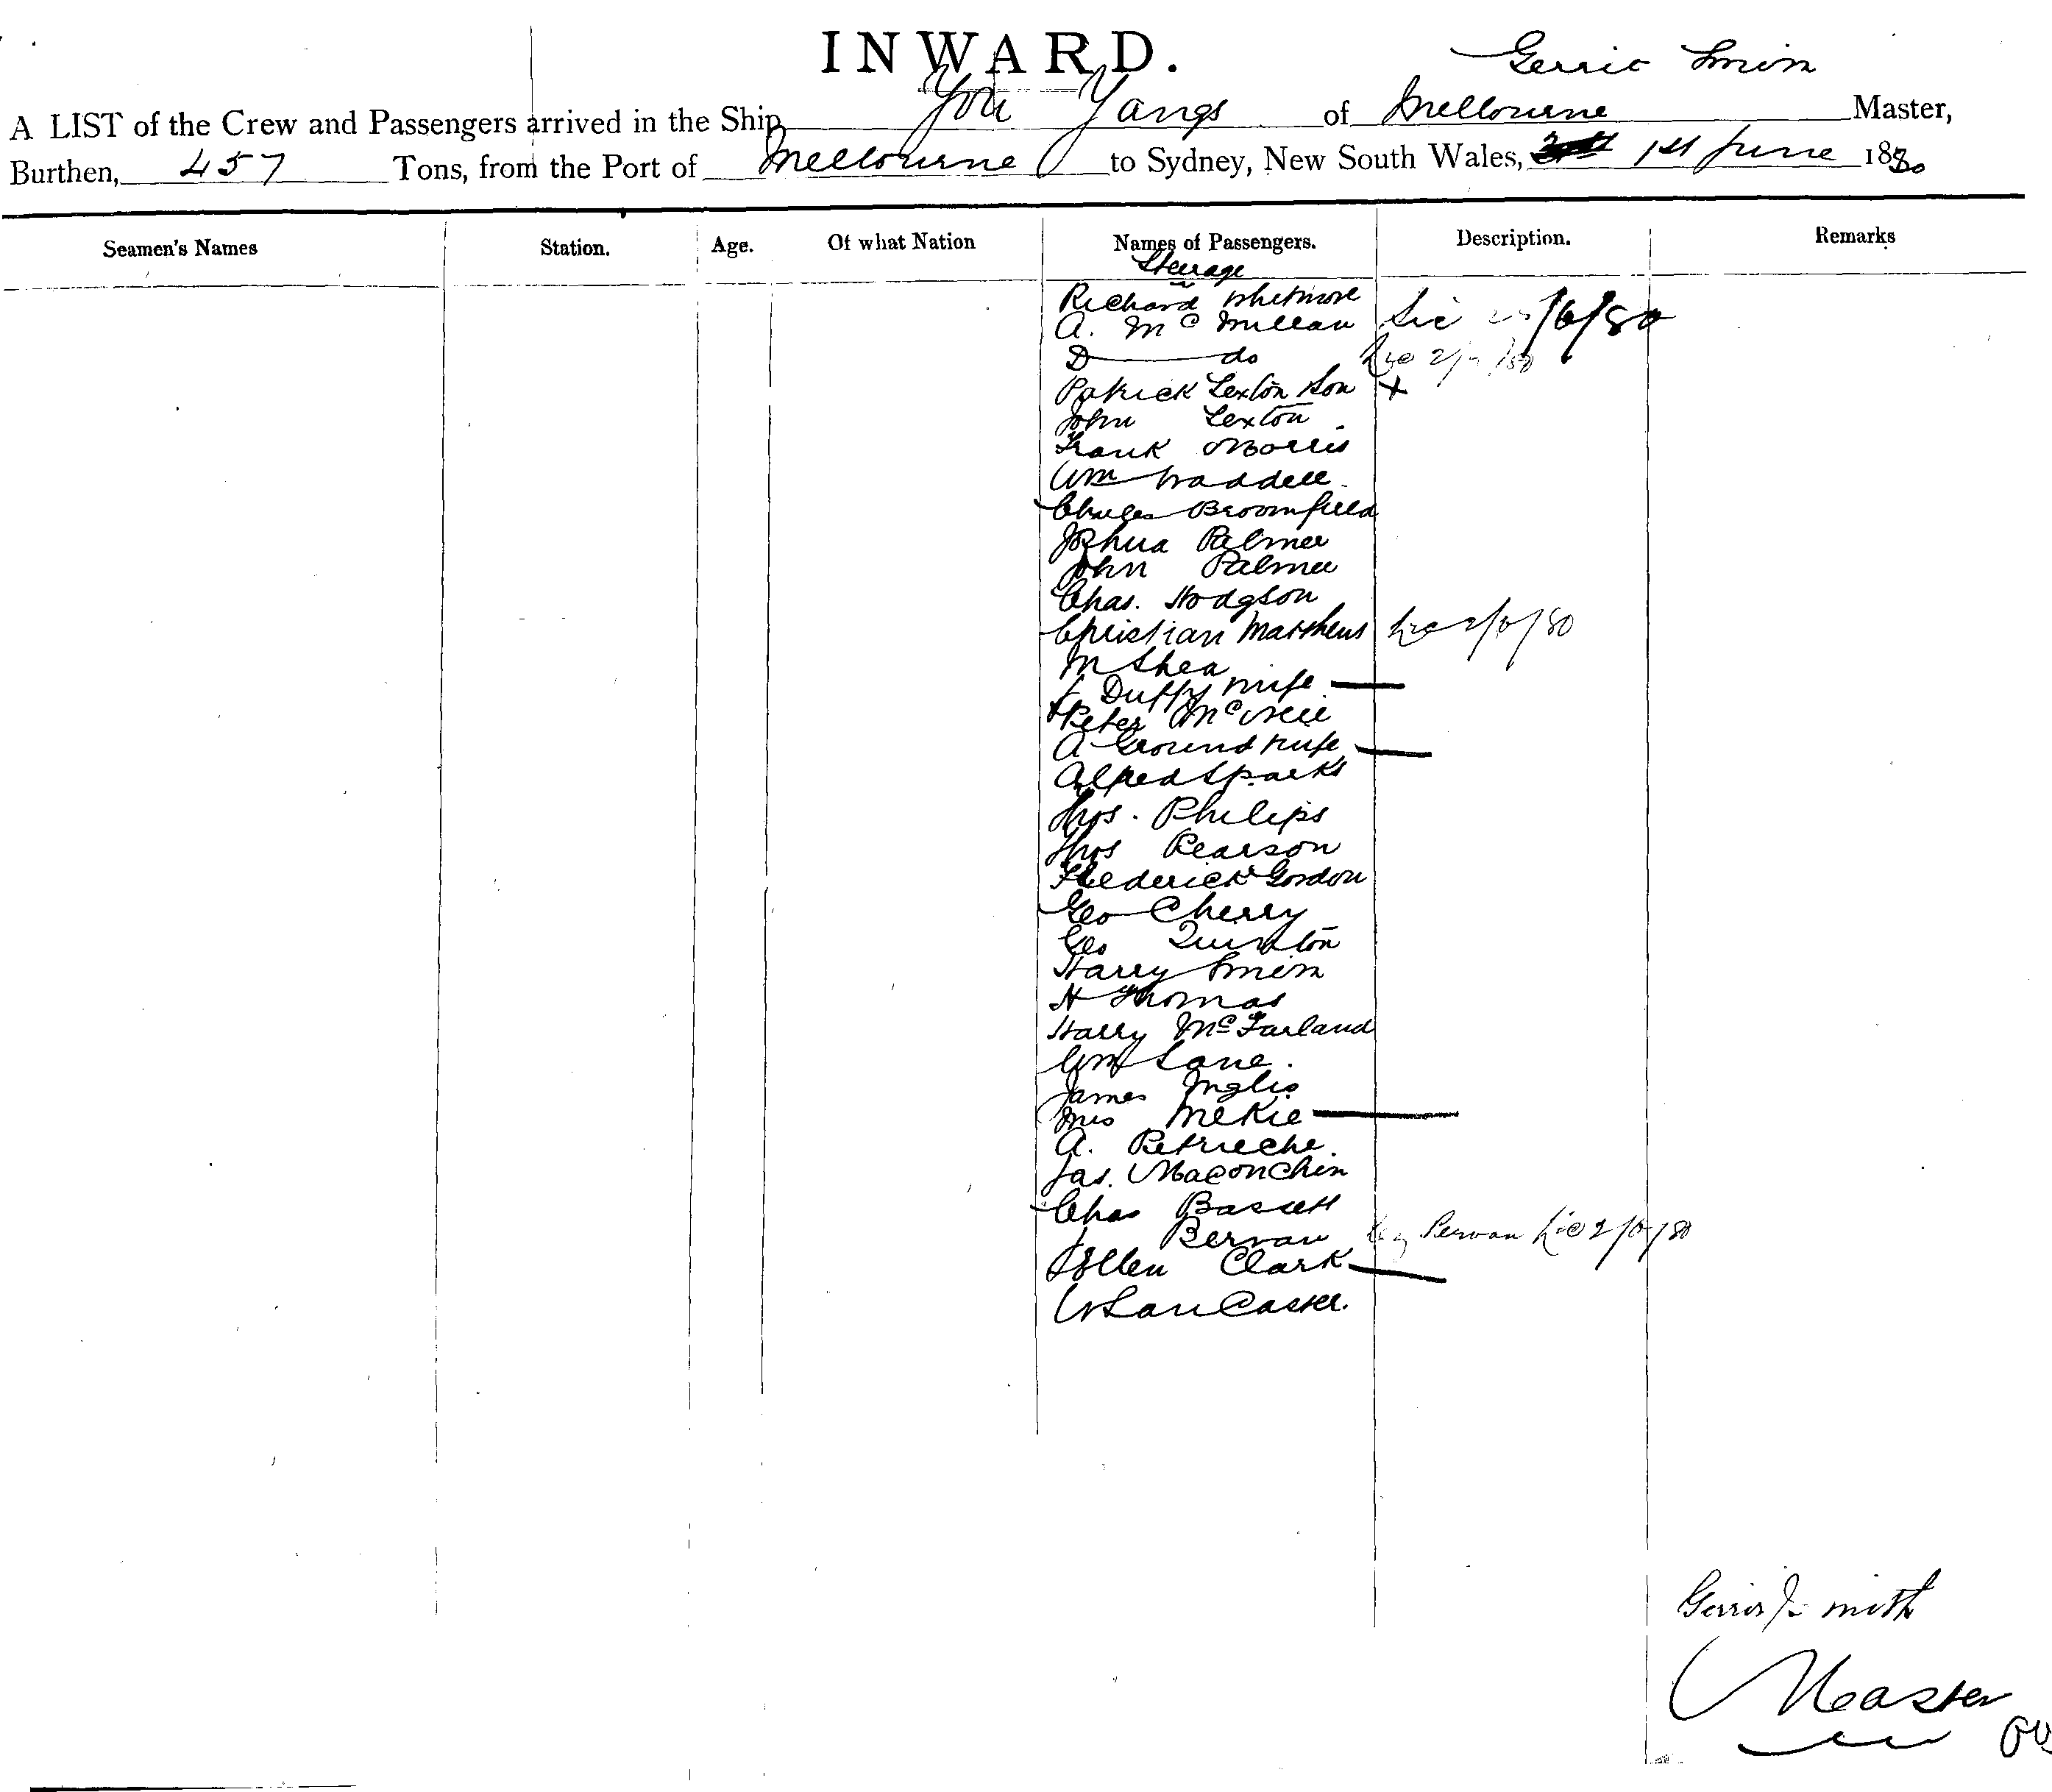 INWARD.
Gerrit Smith
A LIST of the Crew and Passengers arrived in the Ship You Yangs of Melbourne Master,
Burthen, 457 Tons, from the Port of Melbourne to Sydney, New South Wales, 1st June 1880
Seamen's Names Station. Age. Of what Nation Names of Passengers. Description. Remarks
Steerage
Richard Whitmore
A. Mc Millan Lic /6/80
D do Lic 2/ /80
Patrick Sexton Son +
John Sexton
Frank Morris
Wm Waddell
Charles Broomfield
Joshua Palmer
John Palmer
Chas. Hodgson
Christian Matthews Lic 2/6/80
M Shea
Duffy wife
Peter McNeil
A Ground wife
Alfred Sparks
Thos. Philips
Thos Pearson
Frederick Gordon
Geo Cherry
Geo Quinton
Harry Smith
H Thomas
Harry McFarland
Wm Lane.
James Inglis
Mrs McKie
A. Petrieche.
Jas. Maconchin
Chas Bassett
J Bervan Pervan Lic 2/6/80
Ellen Clark
W Lancaster.
Gerrit Smith
Master